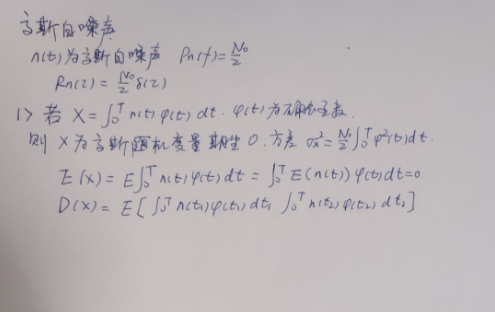 高斯白噪声
n(t)为高斯白噪声 Pn(f)=N₀/2
Rn(τ)=N₀/2 δ(τ)
1) 若 X=∫₀ᵀ n(t)φ(t)dt. φ(t)为确知函数.
则 X 为高斯随机变量 期望0. 方差 σx²=N₀/2∫₀ᵀφ²(t)dt.
E(X)=E∫₀ᵀn(t)φ(t)dt=∫₀ᵀE(n(t))φ(t)dt=0
D(X)=E[∫₀ᵀn(t₁)φ(t₁)dt₁ ∫₀ᵀn(t₂)φ(t₂)dt₂]